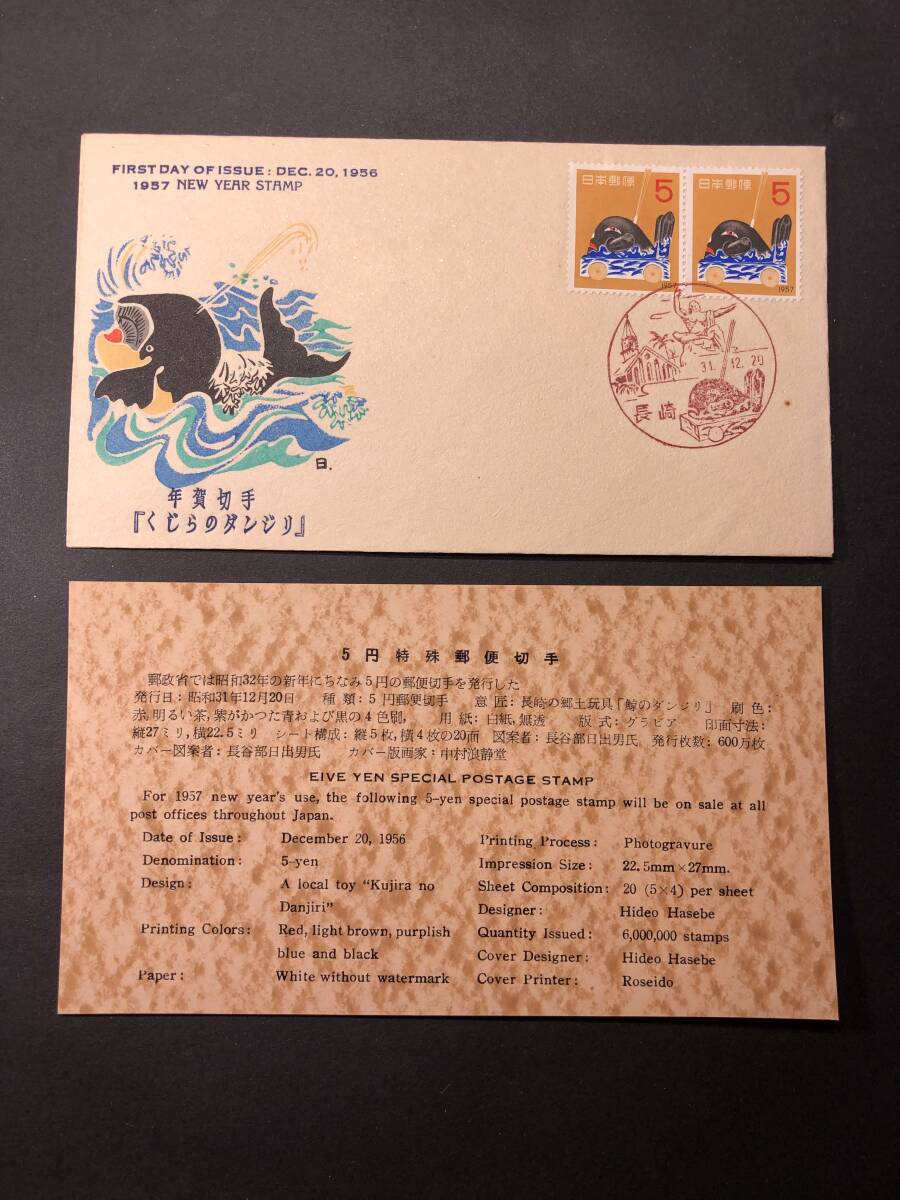 FIRST DAY OF ISSUE: DEC. 20, 1956
1957 NEW YEAR STAMP
日本郵便 5
1957
日本郵便 5
1957
31.12.20
長崎
日.
年賀切手
『くじらのダンジリ』
5円特殊郵便切手
郵政省では昭和32年の新年にちなみ5円の郵便切手を発行した
発行日:昭和31年12月20日 種類:5円郵便切手 意匠:長崎の郷土玩具「鯨のダンジリ」 刷色:
赤,明るい茶,紫がかつた青および黒の4色刷, 用紙:白紙,無透 版式:グラビア 印面寸法:
縦27ミリ,横22.5ミリ シート構成:縦5枚,横4枚の20面 図案者:長谷部日出男氏 発行枚数:600万枚
カバー図案者:長谷部日出男氏 カバー版画家:中村浪静堂
EIVE YEN SPECIAL POSTAGE STAMP
For 1957 new year's use, the following 5-yen special postage stamp will be on sale at all
post offices throughout Japan.
Date of Issue: December 20, 1956
Denomination: 5-yen
Design: A local toy "Kujira no
Danjiri"
Printing Colors: Red, light brown, purplish
blue and black
Paper: White without watermark
Printing Process: Photogravure
Impression Size: 22.5mm×27mm.
Sheet Composition: 20 (5×4) per sheet
Designer: Hideo Hasebe
Quantity Issued: 6,000,000 stamps
Cover Designer: Hideo Hasebe
Cover Printer: Roseido